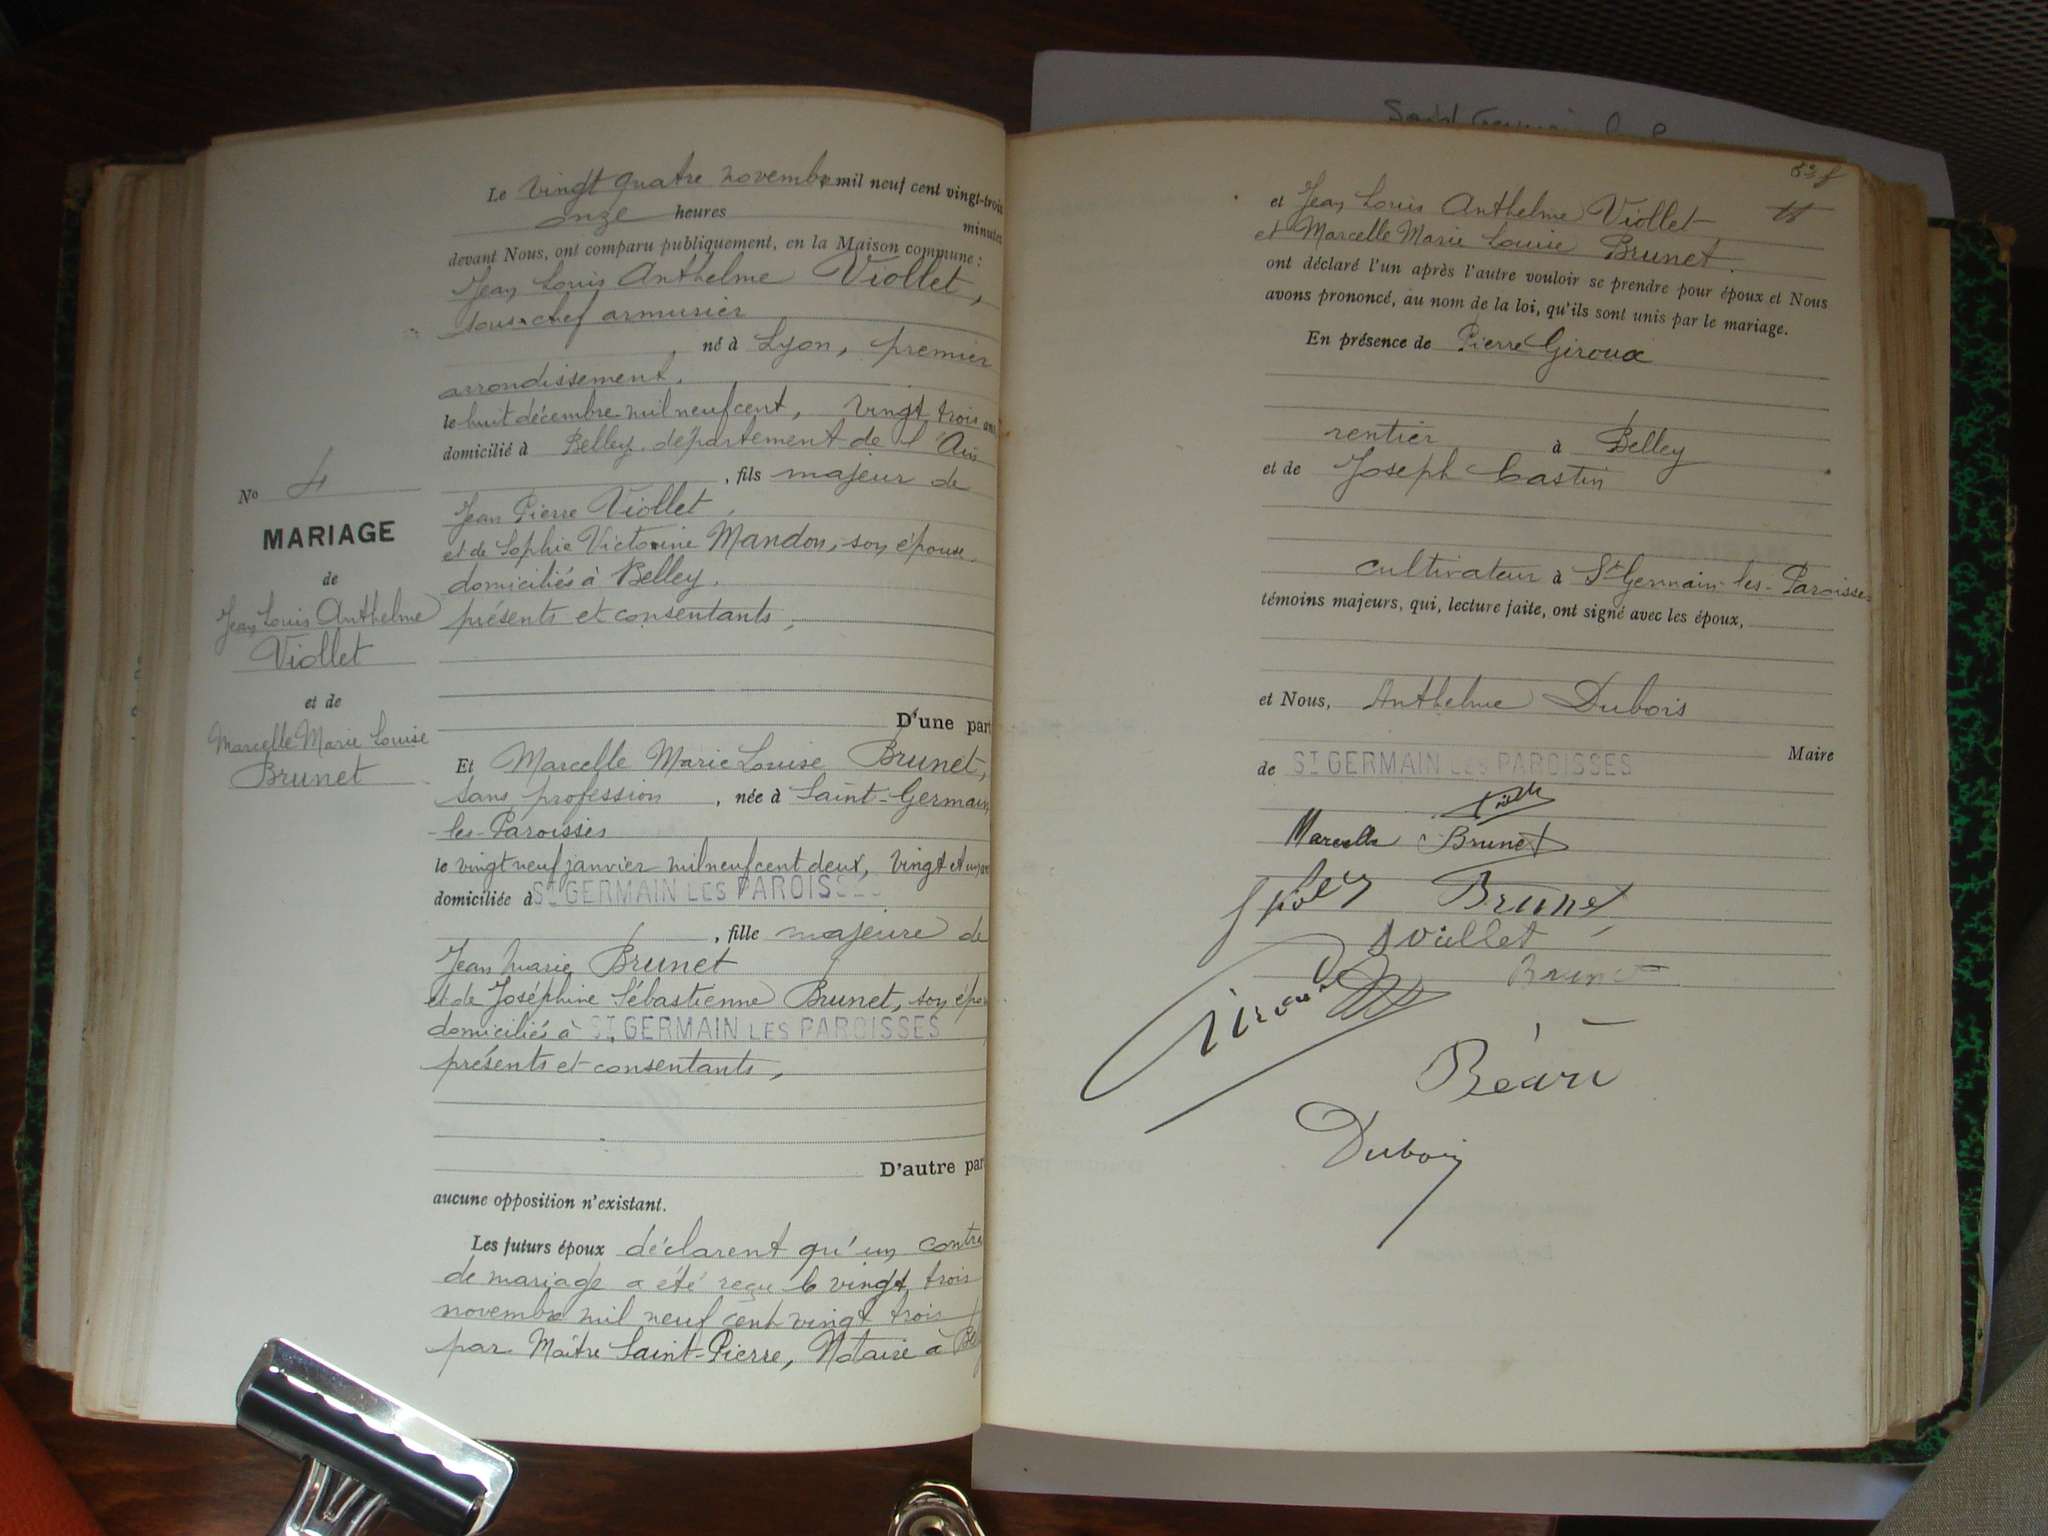 Le vingt quatre novembre mil neuf cent vingt-trois
onze heures minutes
devant Nous, ont comparu publiquement, en la Maison commune :
Jean Louis Anthelme Viollet,
sous-chef armurier
, né à Lyon, premier
arrondissement,
le huit décembre mil neuf cent, vingt trois ans
domicilié à Belley, département de l'Ain
, fils majeur de
Jean Pierre Viollet,
et de Sophie Victorine Mandon, son épouse,
domiciliés à Belley,
présents et consentants,
D'une part
No 4
MARIAGE
de
Jean Louis Anthelme
Viollet
et de
Marcelle Marie Louise
Brunet
Et Marcelle Marie Louise Brunet,
sans profession, née à Saint-Germain
-les-Paroisses
le vingt neuf janvier mil neuf cent deux, vingt et un ans
domiciliée à ST GERMAIN LES PAROISSES
, fille majeure de
Jean Marie Brunet
et de Joséphine Sébastienne Brunet, son épou
domiciliés à ST GERMAIN LES PAROISSES
présents et consentants,
D'autre par
aucune opposition n'existant.
Les futurs époux déclarent qu'un contra
de mariage a été reçu le vingt trois
novembre mil neuf cent vingt trois
par Maître Saint-Pierre, Notaire à Bel
et Jean Louis Anthelme Viollet
et Marcelle Marie Louise Brunet.
ont déclaré l'un après l'autre vouloir se prendre pour époux et Nous
avons prononcé, au nom de la loi, qu'ils sont unis par le mariage.
En présence de Pierre Giroux
rentier à Belley
et de Joseph Castin
cultivateur à St Germain-les-Paroisses
témoins majeurs, qui, lecture faite, ont signé avec les époux,
et Nous, Anthelme Dubois
Maire
de ST GERMAIN LES PAROISSES
Marcelle Brunet
Brunet
Viollet
Giroux
Brunet
Dubois